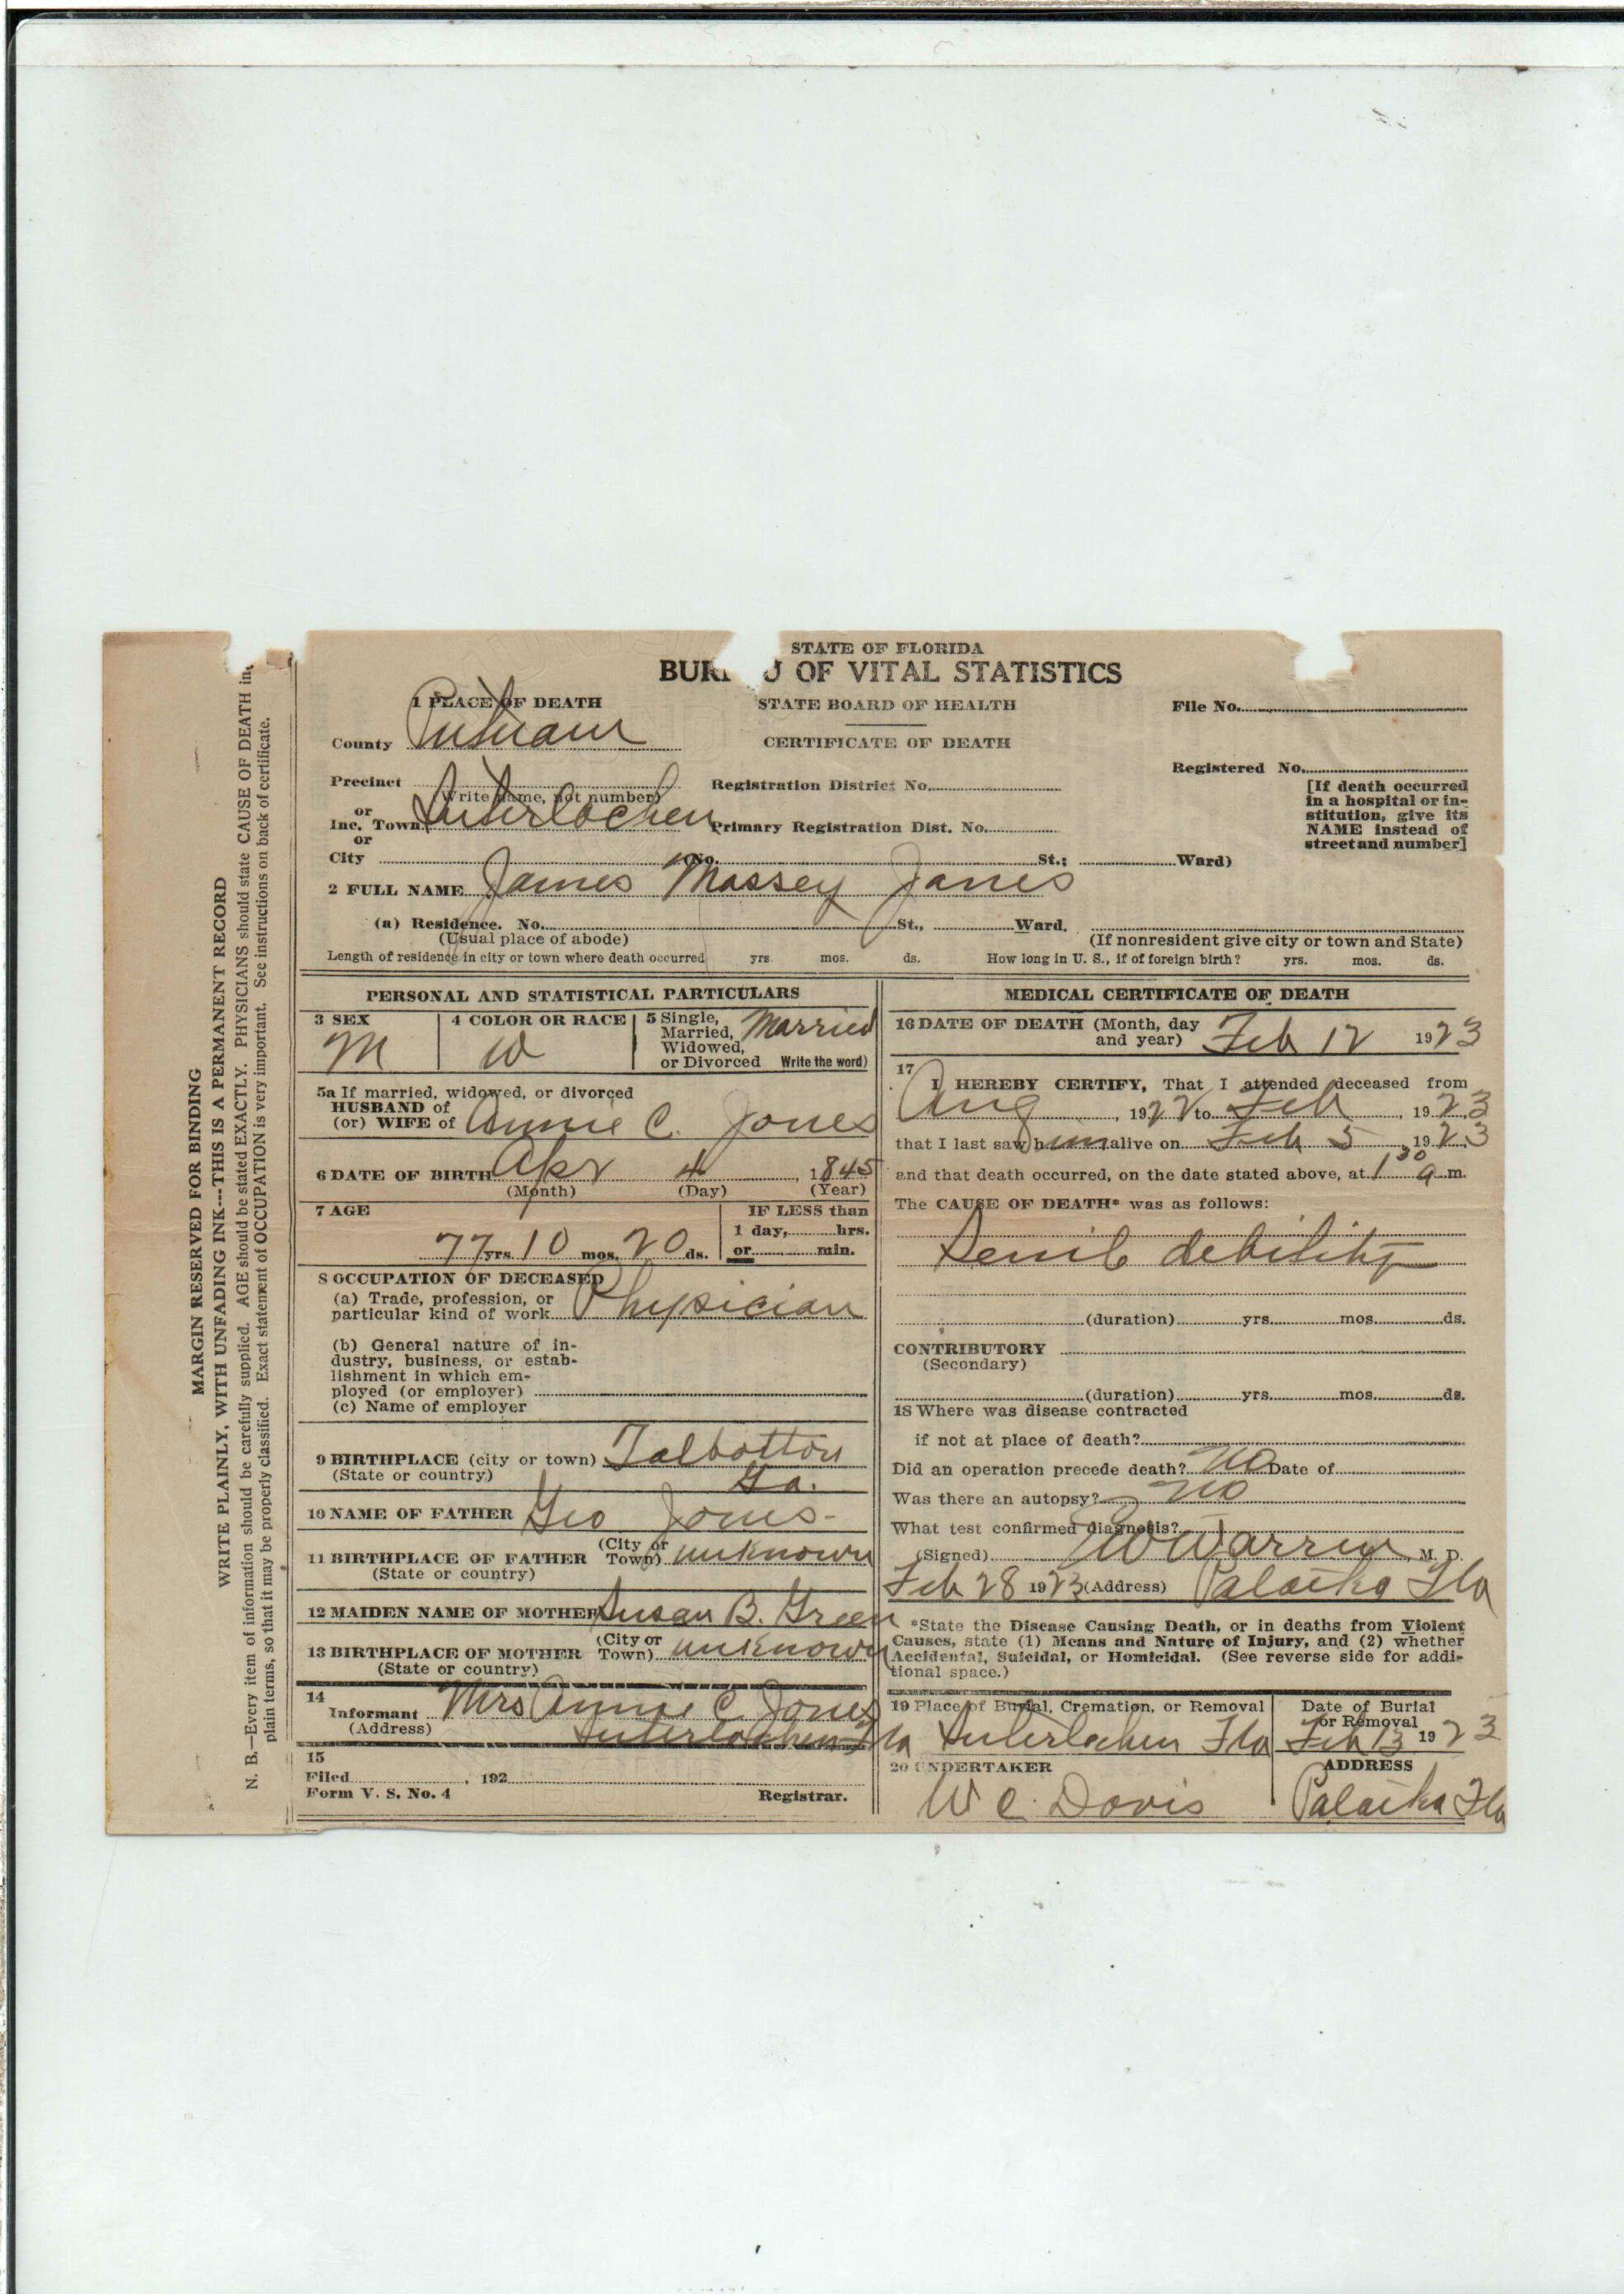 STATE OF FLORIDA
BUR U OF VITAL STATISTICS
STATE BOARD OF HEALTH
CERTIFICATE OF DEATH
1 PLACE OF DEATH
County Putnam
Precinct
(Write name, not number)
or
Inc. Town Interlachen
or
City No. St.; Ward)
Registration District No.
Primary Registration Dist. No.
File No.
Registered No.
[If death occurred
in a hospital or in-
stitution, give its
NAME instead of
street and number]
2 FULL NAME James Massey Jones
(a) Residence. No. St., Ward.
(Usual place of abode) (If nonresident give city or town and State)
Length of residence in city or town where death occurred yrs. mos. ds. How long in U. S., if of foreign birth? yrs. mos. ds.
PERSONAL AND STATISTICAL PARTICULARS
3 SEX
M
4 COLOR OR RACE
W
5 Single,
Married,
Widowed,
or Divorced Write the word)
Married
5a If married, widowed, or divorced
HUSBAND of
(or) WIFE of Annie C. Jones
6 DATE OF BIRTH Apr 4, 1845
(Month) (Day) (Year)
7 AGE
77 yrs. 10 mos. 20 ds.
IF LESS than
1 day, hrs.
or min.
8 OCCUPATION OF DECEASED
(a) Trade, profession, or
particular kind of work Physician
(b) General nature of in-
dustry, business, or estab-
lishment in which em-
ployed (or employer)
(c) Name of employer
9 BIRTHPLACE (city or town) Talbotton
(State or country) Ga.
10 NAME OF FATHER Geo Jones-
11 BIRTHPLACE OF FATHER (City or Town) unknown
(State or country)
12 MAIDEN NAME OF MOTHER Susan B. Green
13 BIRTHPLACE OF MOTHER (City or Town) unknown
(State or country)
14
Informant Mrs Annie C. Jones
(Address) Interlachen Fla
15
Filed , 192
Form V. S. No. 4 Registrar.
MEDICAL CERTIFICATE OF DEATH
16 DATE OF DEATH (Month, day
and year) Feb 12 1923
17
I HEREBY CERTIFY, That I attended deceased from
Aug , 1922 to Feb , 1923
that I last saw him alive on Feb 5 , 1923
and that death occurred, on the date stated above, at 1 30 a m.
The CAUSE OF DEATH* was as follows:
Senile debility
(duration) yrs. mos. ds.
CONTRIBUTORY
(Secondary)
(duration) yrs. mos. ds.
18 Where was disease contracted
if not at place of death?
Did an operation precede death? No Date of
Was there an autopsy? No
What test confirmed diagnosis?
(Signed) Warren, M. D.
Feb 28 1923 (Address) Palatka Fla
*State the Disease Causing Death, or in deaths from Violent
Causes, state (1) Means and Nature of Injury, and (2) whether
Accidental, Suicidal, or Homicidal. (See reverse side for addi-
tional space.)
19 Place of Burial, Cremation, or Removal
Interlachen Fla
Date of Burial
or Removal
Feb 13 1923
20 UNDERTAKER
W C. Davis
ADDRESS
Palatka Fla
MARGIN RESERVED FOR BINDING
WRITE PLAINLY, WITH UNFADING INK---THIS IS A PERMANENT RECORD
N. B.—Every item of information should be carefully supplied. AGE should be stated EXACTLY. PHYSICIANS should state CAUSE OF DEATH in
plain terms, so that it may be properly classified. Exact statement of OCCUPATION is very important. See instructions on back of certificate.